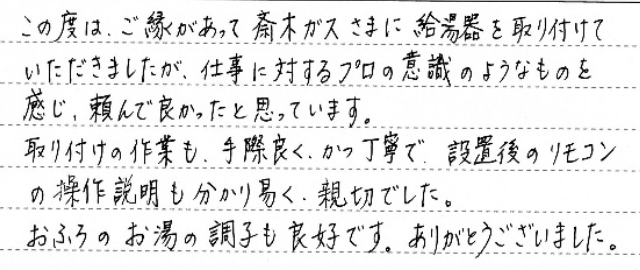 この度は、ご縁があって斎木ガスさまに給湯器を取り付けて
いただきましたが、仕事に対するプロの意識のようなものを
感じ、頼んで良かったと思っています。
取り付けの作業も、手際良く、かつ丁寧で、設置後のリモコン
の操作説明も分かり易く、親切でした。
おふろのお湯の調子も良好です。ありがとうございました。